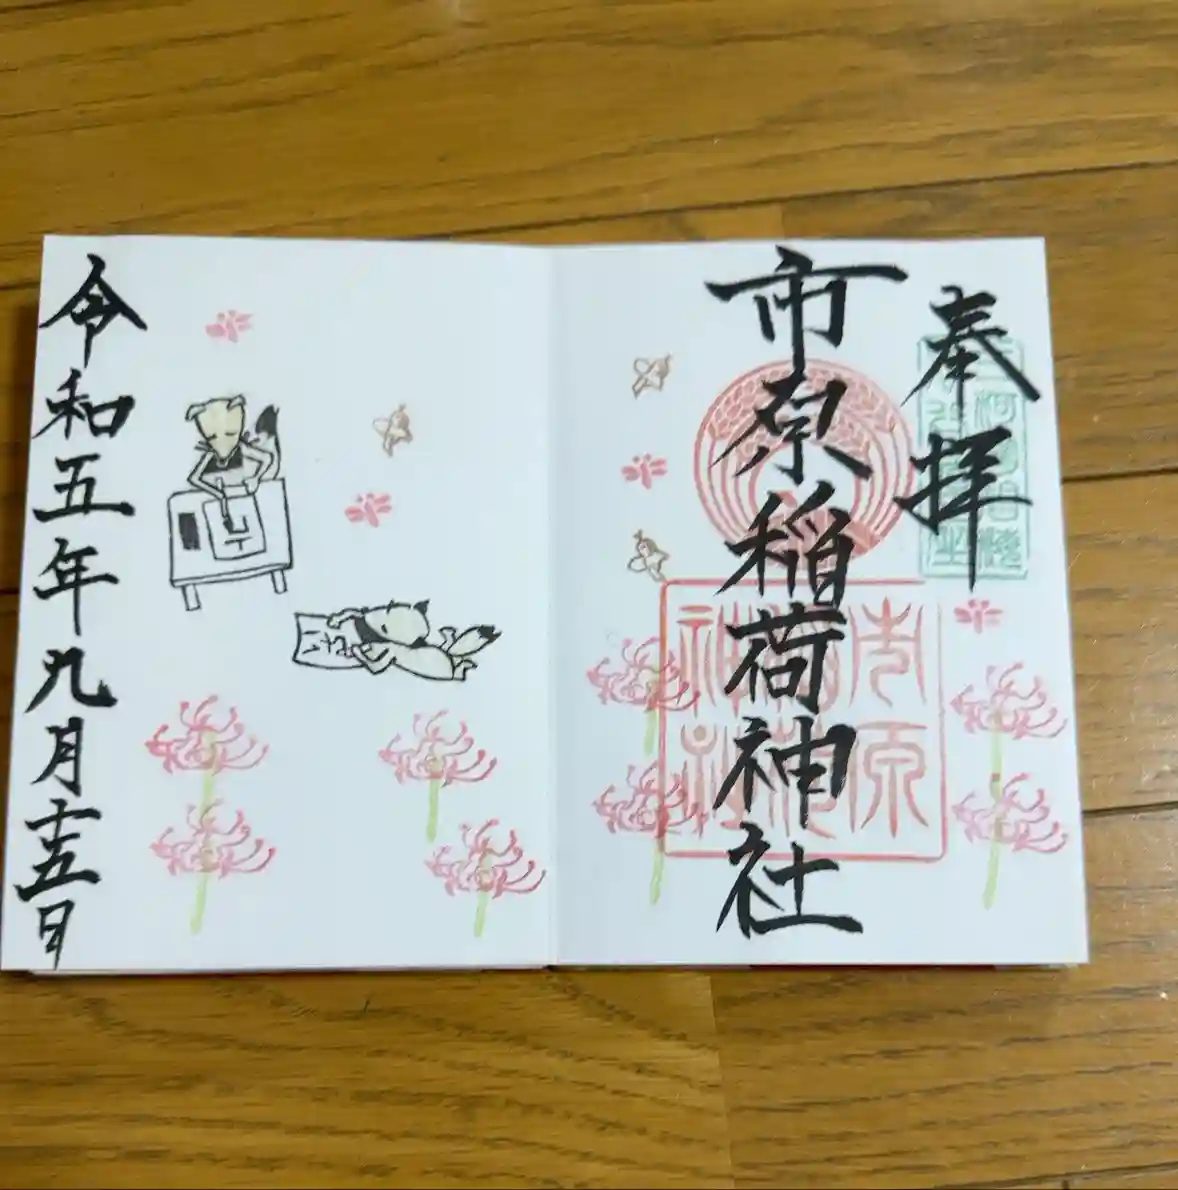 奉拝
市原稲荷神社
市原
稲荷
神社
令和五年九月十五日